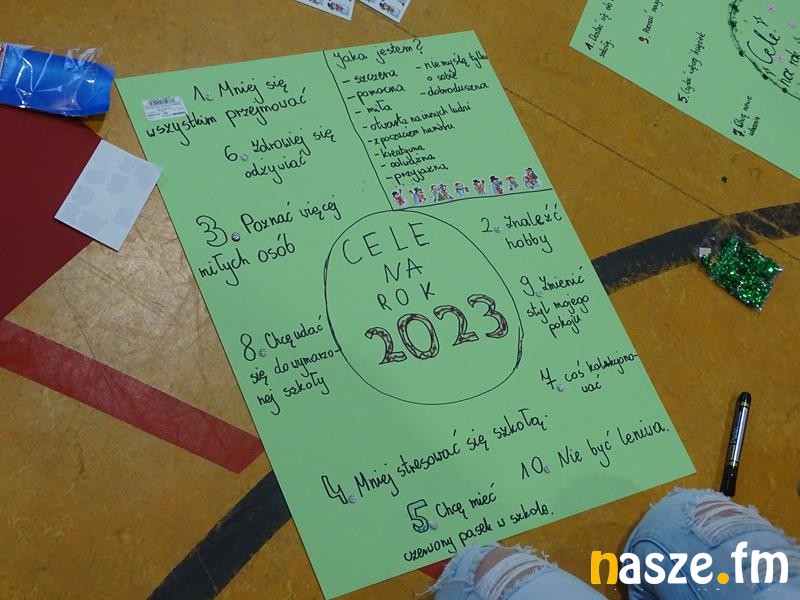 1. Mniej się
wszystkim przejmować
6. Zdrowiej się
odżywiać
3. Poznać więcej
miłych osób
8. Chcę udać
się do wymarzo-
nej szkoły
4. Mniej stresować się szkołą.
5. Chcę mieć
czerwony pasek w szkole.
10. Nie być leniwa.
Jaka jestem?
- szczera
- pomocna
- miła
- otwarta na innych ludzi
- z poczuciem humoru
- kreatywna
- odważna
- przyjazna
- nie myślę tylko
o sobie
- dobroduszna
CELE
NA
ROK
2023
2. Znaleźć
hobby
9. Zmienić
styl mojego
pokoju
7. coś kolekcjono-
wać
1. Dostać się do
szkoły
9. Poznać
5. Czytać więcej książek
Cele
na rok
nasze.fm